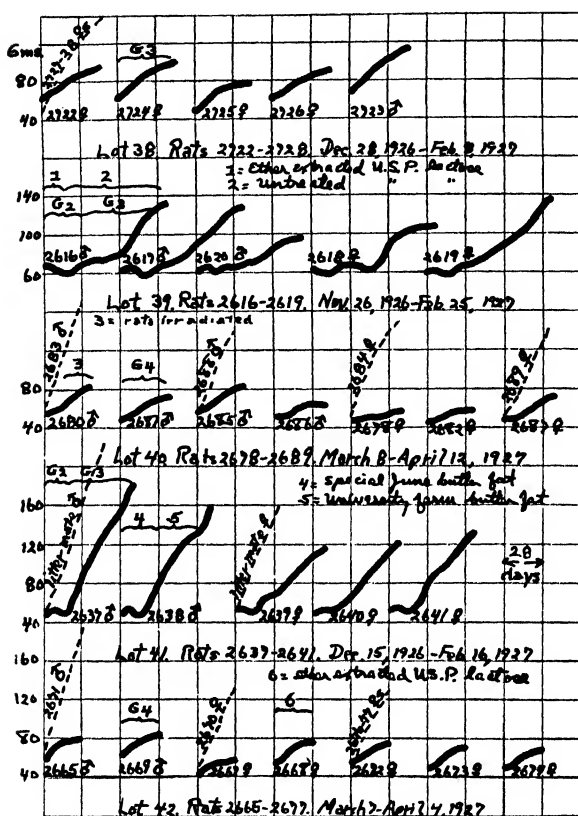 Gms.
80
40
2722-38 ♀s
G3
2722♀ 2724♀ 2725♀ 2726♀ 2723♂
Lot 38 Rats 2722-2728. Dec 28, 1926-Feb 8, 1927
1= Ether extracted U.S.P. lactose
2= Untreated " "
140
100
60
1 2
G2 G3
2616♂ 2617♂ 2620♂ 2618♀ 2619♀
Lot 39. Rats 2616-2619. Nov. 26, 1926-Feb. 25, 1927
3= rats irradiated
80
40
2683♂ 2688♂ 2684♀ 2689♀
3 G4
2680♂ 2681♂ 2685♂ 2686♂ 2678♀ 2682♀ 2687♀
Lot 40 Rats 2678-2689. March 8-April 12, 1927
4= special June butter fat
5= University farm butter fat
160
120
80
40
G2 G3
4 5
28
days
2637♂ 2638♂ 2639♀ 2640♀ 2641♀
Lot 41. Rats 2637-2641. Dec. 15, 1926-Feb 16, 1927
6= ether extracted U.S.P. lactose
160
120
80
40
2671♂ 2670♀
G4 6
2665♂ 2669♂ 2667♀ 2668♀ 2672♀ 2673♀ 2677♀
Lot 42. Rats 2665-2677. March 7-April 4, 1927